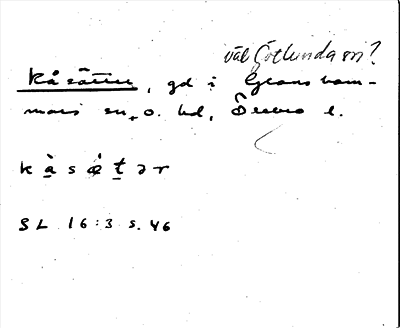 väl Götlunda sn?
Kåsätter, gd i Glansham-
mars sn. o. hd, Örebro l.
k å̀ s ǽ t ə r
SL 16:3 s. 46